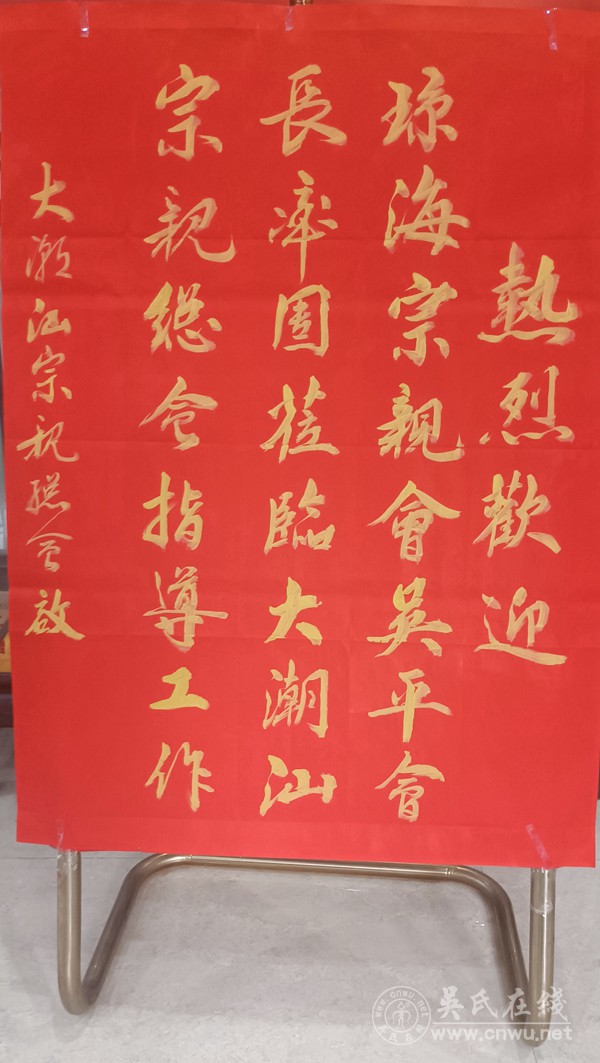 熱烈歡迎
琼海宗親會吴平會
長率团莅臨大潮汕
宗親總会指導工作
大潮汕宗親總会啟
吳氏在线
www.cnwu.net